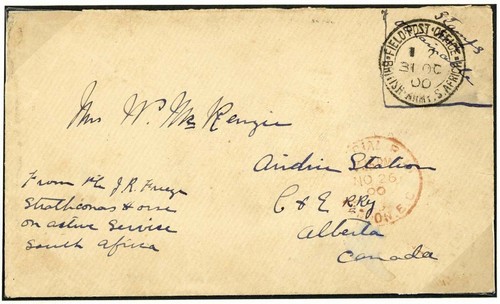 Stamps
FIELD POST OFFICE
BRITISH ARMY S. AFRICA
1
31 OC
00
Mrs W. McKenzie
Airdrie Station
C & E R.Ry
Alberta
Canada
NO 26
00
From Pte J.R.
Strathconas Horse
on active Service
South Africa